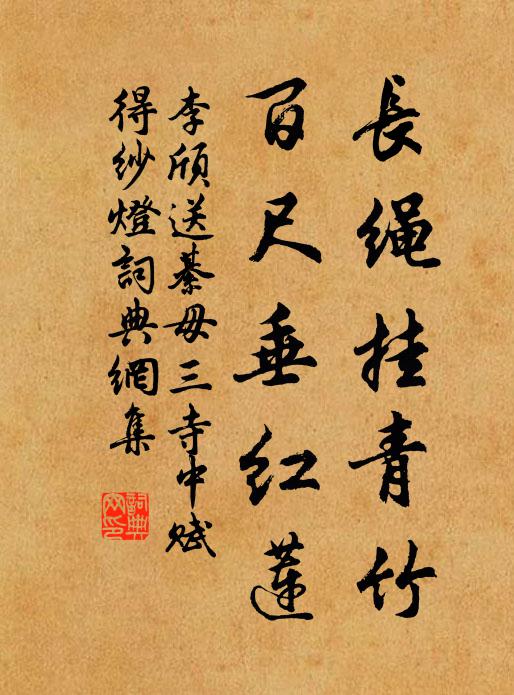 長绳挂青竹
百尺垂红蓮
李颀送綦毋三寺中赋
得紗燈詞典網集
詞典
网印